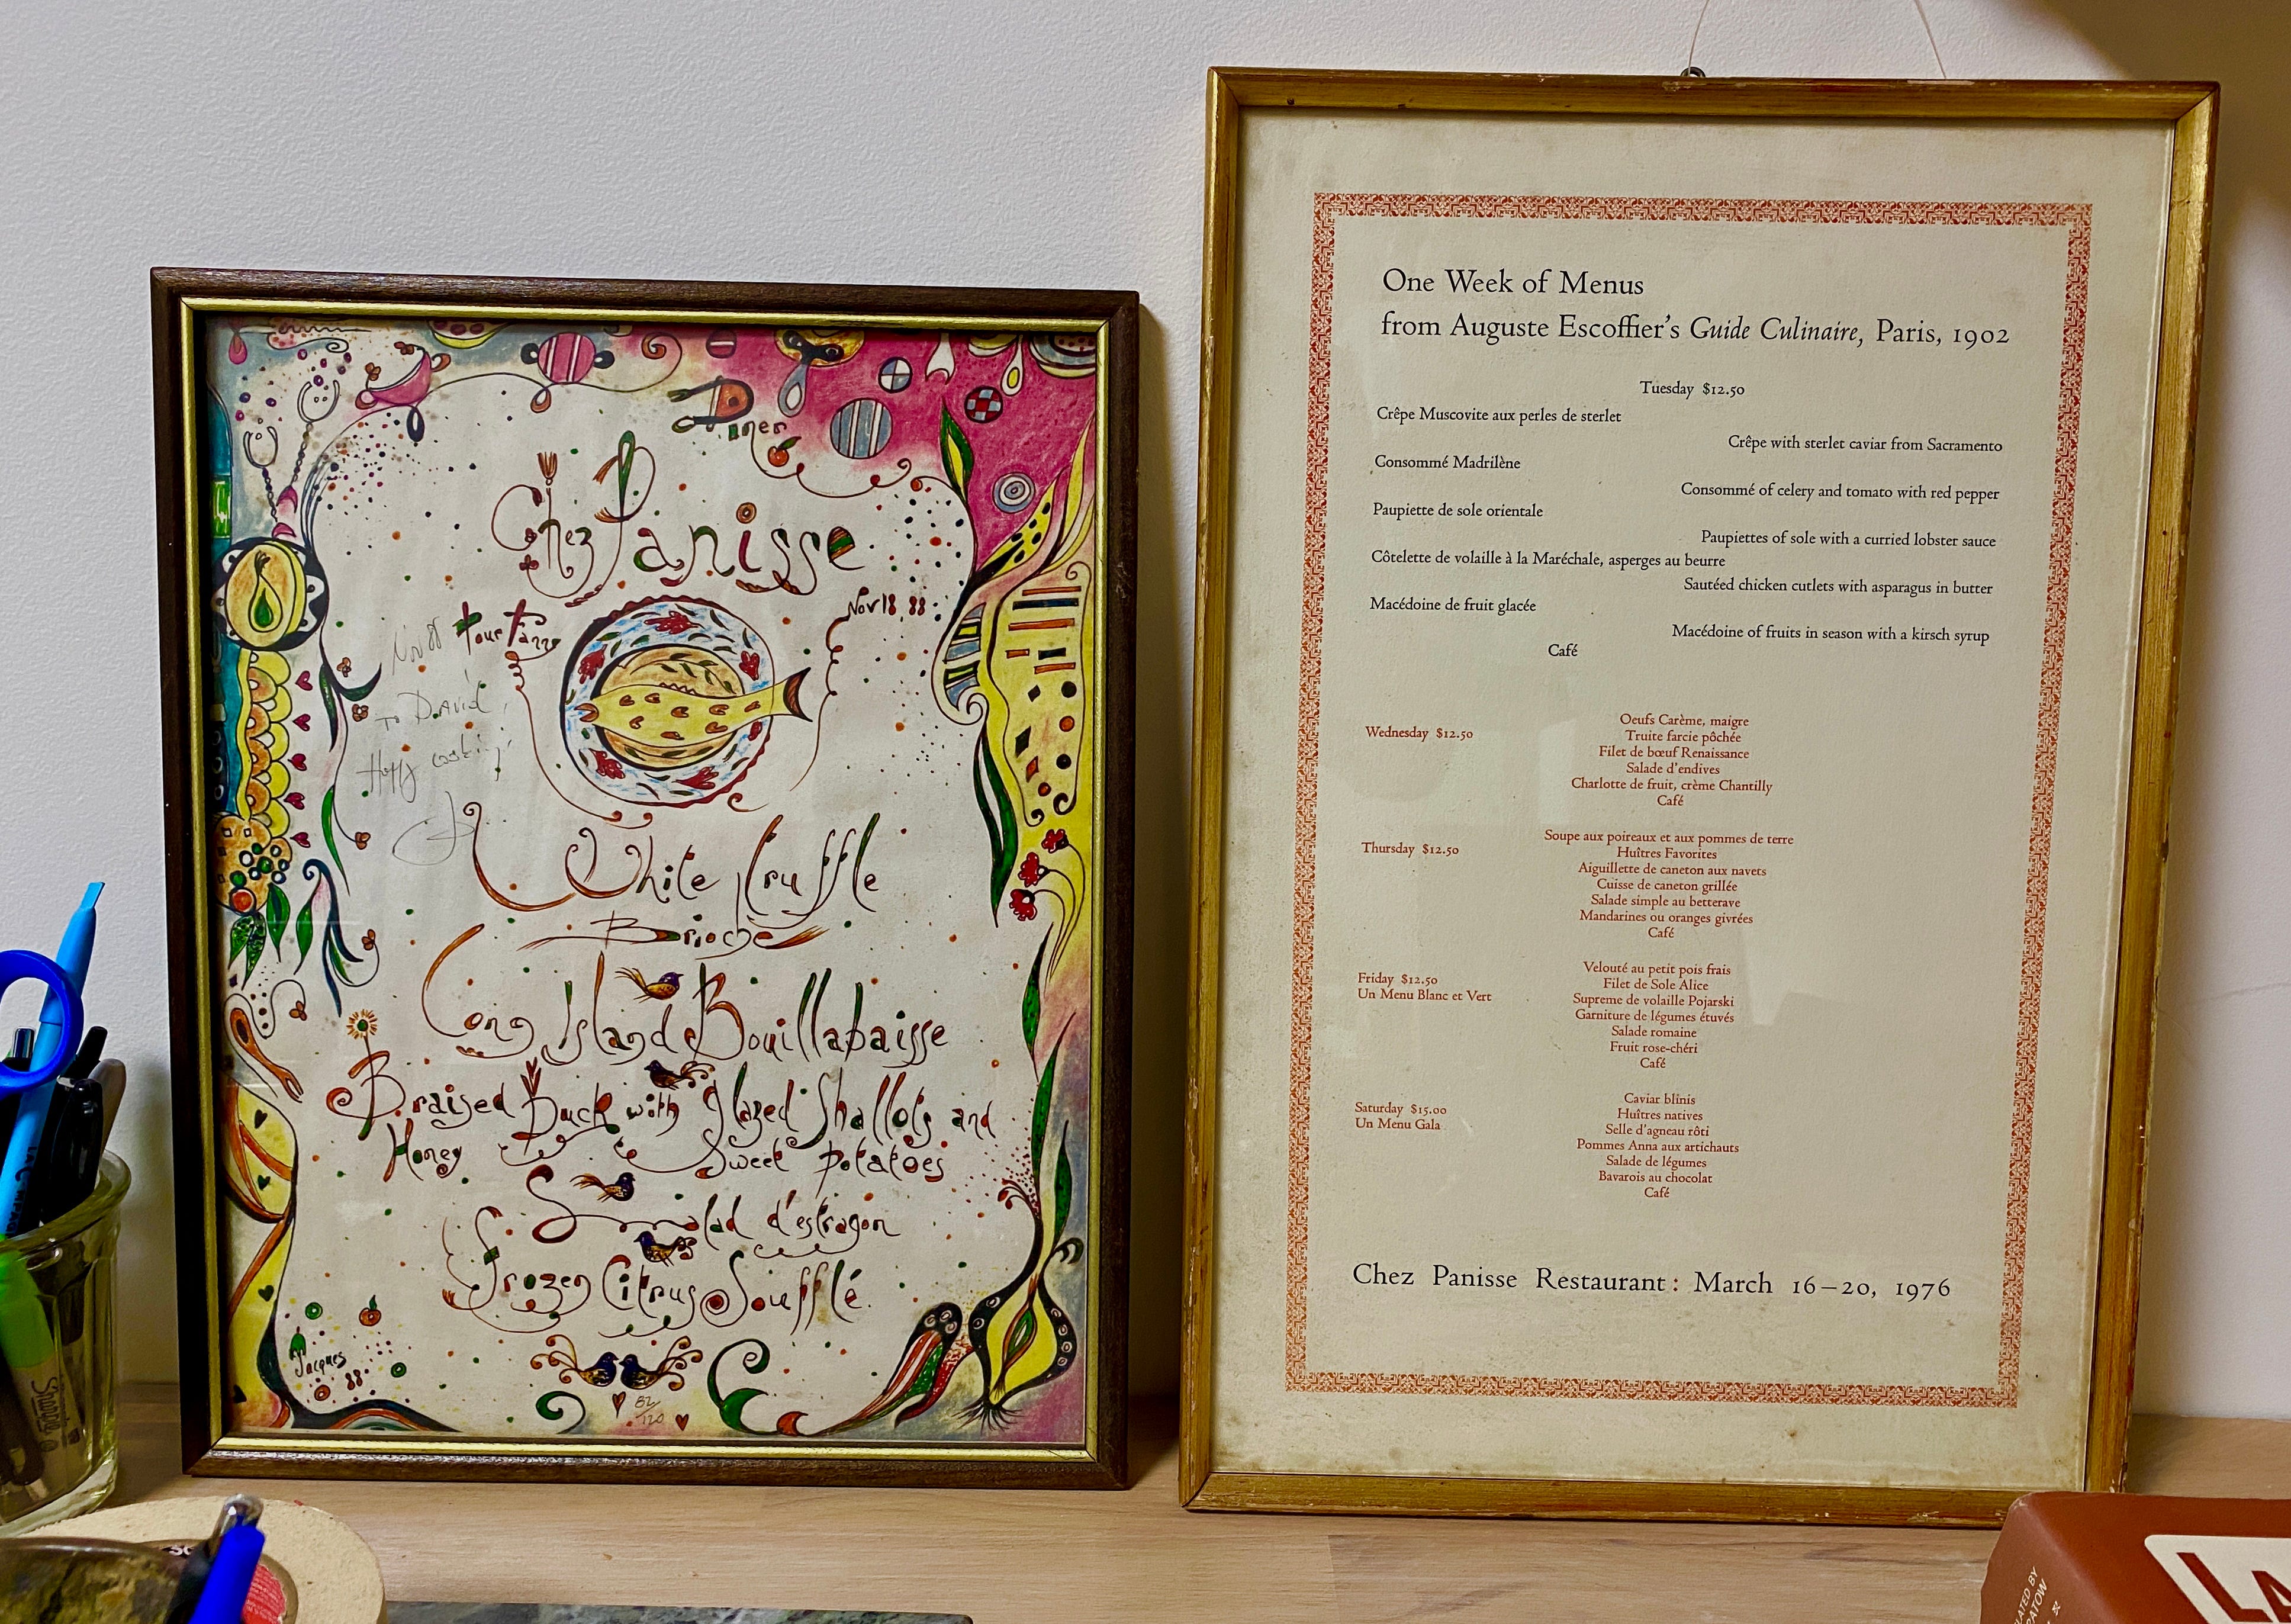 Diner
Chez Panisse
Nov 18, 88
Pour Fanny
Nov 88
To David,
Happy cooking,
White Truffle
Brioche
Long Island Bouillabaisse
Braised Duck with glazed Shallots and
Honey Sweet Potatoes
Salad d'estragon
Frozen Citrus Soufflé.
Jacques
88
82/120
One Week of Menus
from Auguste Escoffier's Guide Culinaire, Paris, 1902
Tuesday $12.50
Crêpe Muscovite aux perles de sterlet
Crêpe with sterlet caviar from Sacramento
Consommé Madrilène
Consommé of celery and tomato with red pepper
Paupiette de sole orientale
Paupiettes of sole with a curried lobster sauce
Côtelette de volaille à la Maréchale, asperges au beurre
Sautéed chicken cutlets with asparagus in butter
Macédoine de fruit glacée
Macédoine of fruits in season with a kirsch syrup
Café
Wednesday $12.50
Oeufs Carème, maigre
Truite farcie pôchée
Filet de bœuf Renaissance
Salade d'endives
Charlotte de fruit, crème Chantilly
Café
Thursday $12.50
Soupe aux poireaux et aux pommes de terre
Huîtres Favorites
Aiguillette de caneton aux navets
Cuisse de caneton grillée
Salade simple au betterave
Mandarines ou oranges givrées
Café
Friday $12.50
Un Menu Blanc et Vert
Velouté au petit pois frais
Filet de Sole Alice
Supreme de volaille Pojarski
Garniture de légumes étuvés
Salade romaine
Fruit rose-chéri
Café
Saturday $15.00
Un Menu Gala
Caviar blinis
Huîtres natives
Selle d'agneau rôti
Pommes Anna aux artichauts
Salade de légumes
Bavarois au chocolat
Café
Chez Panisse Restaurant: March 16–20, 1976
Sharpie
LA